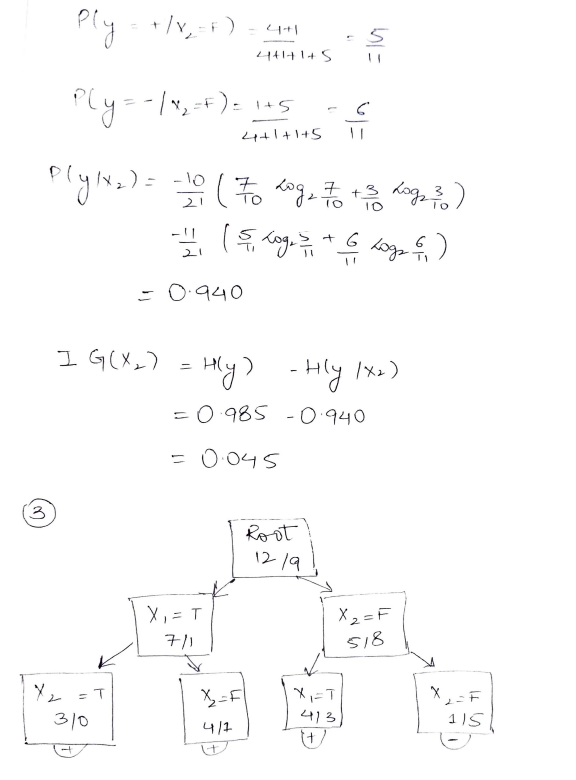 P(y = +/X₂=F) = 4+1 / 4+1+1+5 = 5/11
P(y = -/X₂=F) = 1+5 / 4+1+1+5 = 6/11
P(y/X₂) = -10/21 (7/10 log₂ 7/10 + 3/10 log₂ 3/10)
-11/21 (5/11 log₂ 5/11 + 6/11 log₂ 6/11)
= 0.940
IG(X₂) = H(y) - H(y/X₂)
= 0.985 - 0.940
= 0.045
3
Root
12/9
X₁ = T
7/1
X₂=F
5/8
X₂ = T
3/0
+
X₂=F
4/1
+
X₁=T
4/3
+
X₂=F
1/5
-